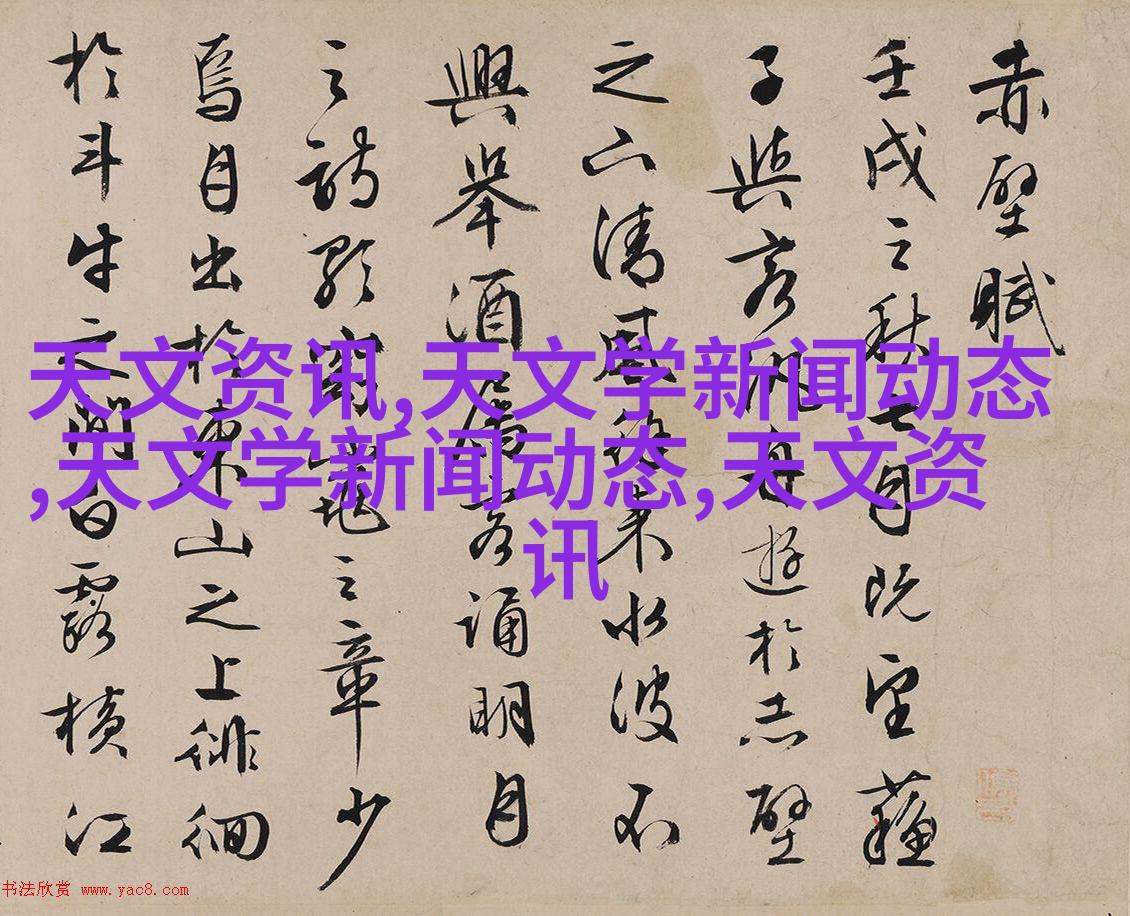 赤壁賦
壬戌之秋七月既望蘇
子與客泛舟遊於赤壁
之下清風徐來水波不
興舉酒屬客誦明月
之詩歌窈窕之章少
焉月出於東山之上徘徊
於斗牛之間白露橫江
天文资讯,天文学新闻动态
,天文学新闻动态,天文资
讯
书法欣赏 www.yac8.com